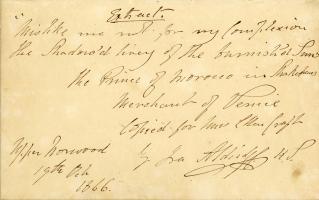 Extract.
"Mislike me not for my Complexion
the Shadow'd livery of the burnish'd Sun"
the Prince of Morocco in Shakspeare's
Merchant of Venice
Copied for Mrs Ellen Craft
Upper Norwood by Ira Aldridge K.S.
19th Feb
1866.